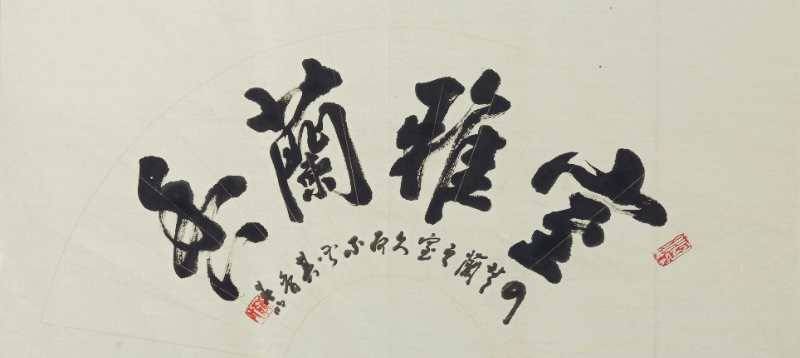 室雅蘭香
芝蘭之室久而不聞其香